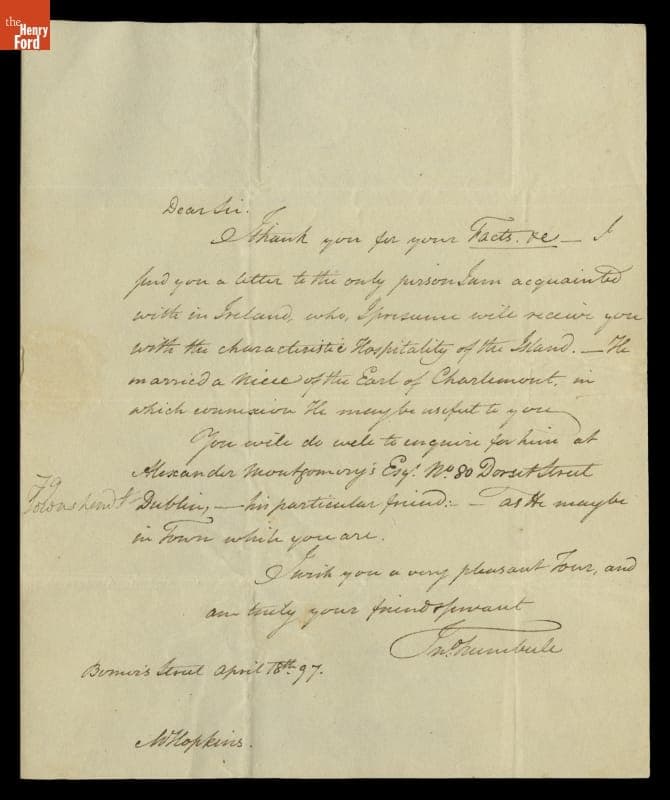 the
Henry
Ford
Dear Sir.
I thank you for your Facts. &c — I
send you a letter to the only person I am acquainted
with in Ireland, who, I presume will receive you
with the characteristic Hospitality of the Island. — He
married a Niece of the Earl of Charlemont, in
which connexion He may be useful to you
You will do well to enquire for him at
Alexander Montgomery's Esqr. No. 80 Dorset Street
79
Townshend St
Dublin, — his particular friend: — as He may be
in Town while you are.
I wish you a very pleasant Tour, and
am truly your friend & servant
Jno Trumbull
Street April 18th 97.
Mr Hopkins.